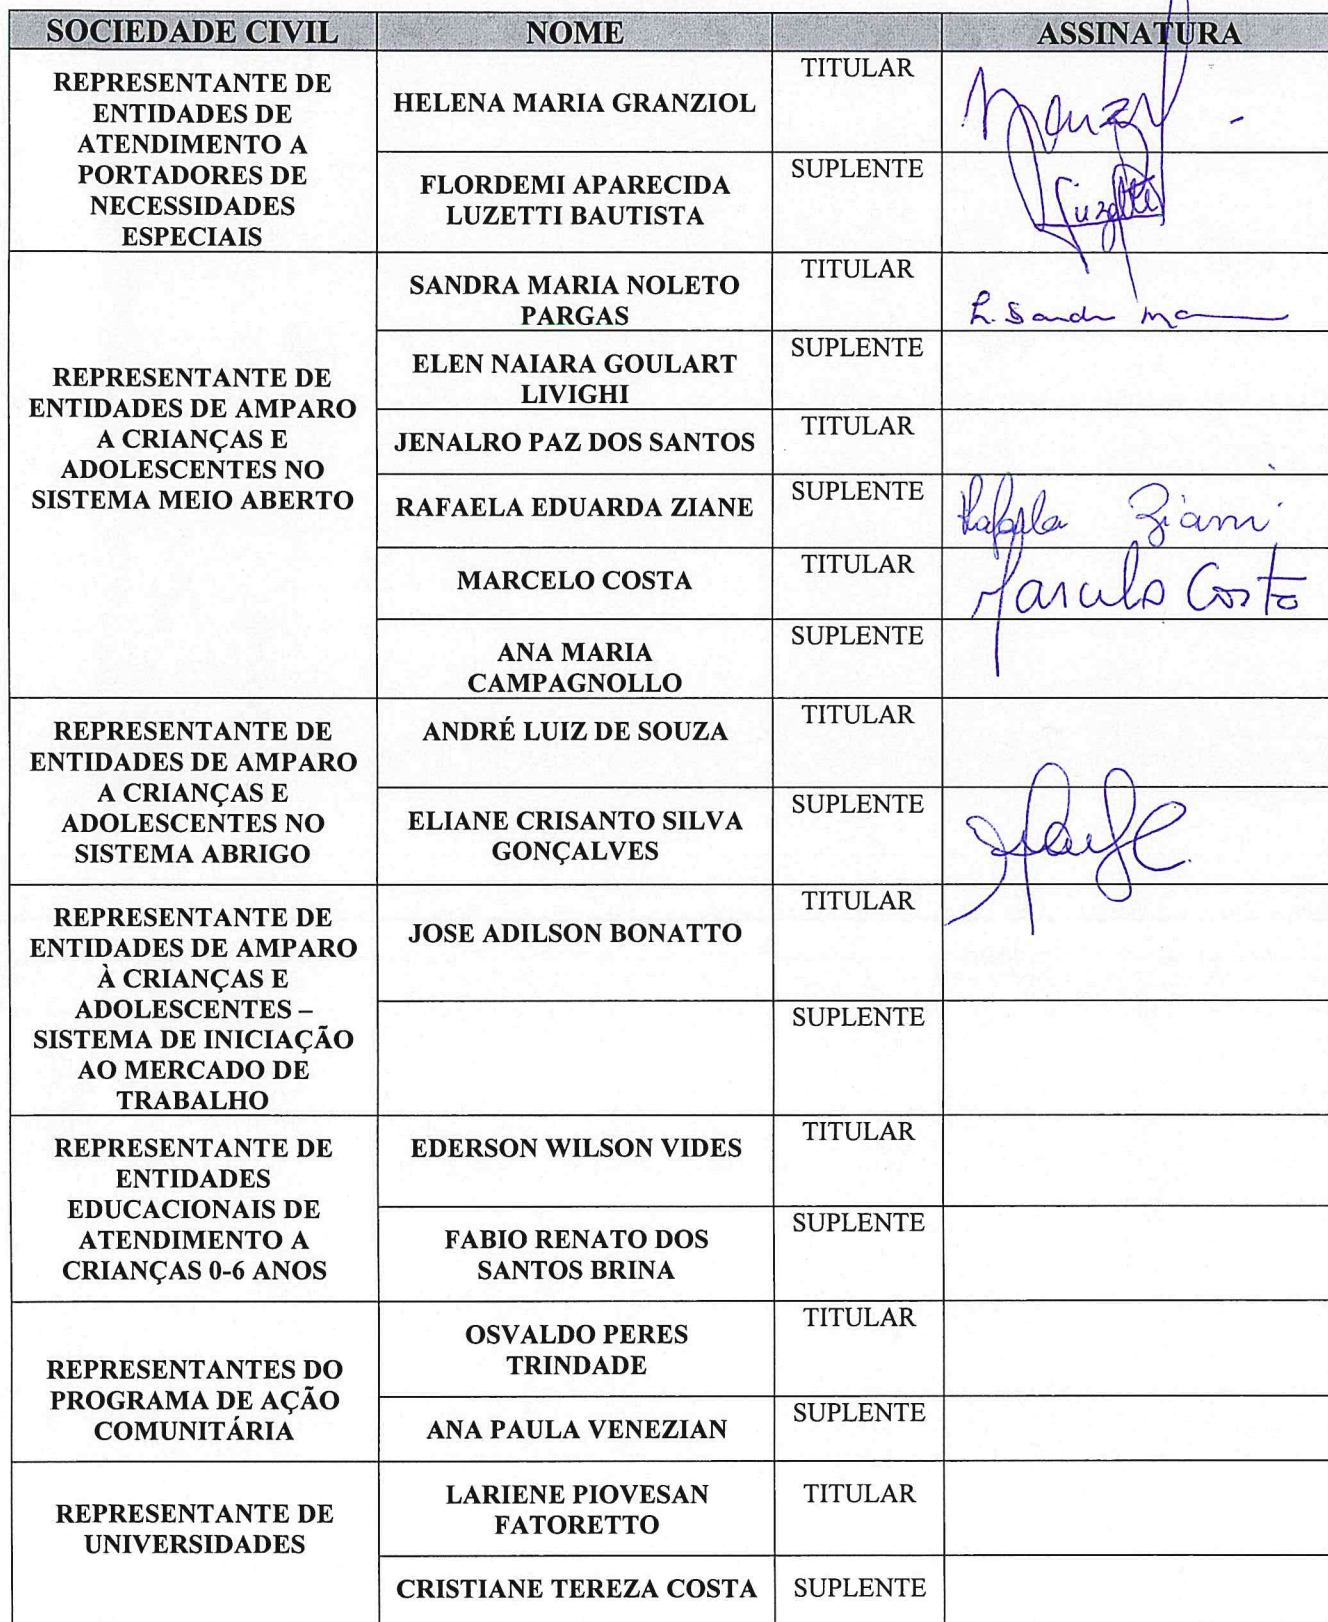 SOCIEDADE CIVIL NOME ASSINATURA
REPRESENTANTE DE
ENTIDADES DE
ATENDIMENTO A
PORTADORES DE
NECESSIDADES
ESPECIAIS
HELENA MARIA GRANZIOL
TITULAR
FLORDEMI APARECIDA
LUZETTI BAUTISTA
SUPLENTE
REPRESENTANTE DE
ENTIDADES DE AMPARO
A CRIANÇAS E
ADOLESCENTES NO
SISTEMA MEIO ABERTO
SANDRA MARIA NOLETO
PARGAS
TITULAR
Sandr Ma
ELEN NAIARA GOULART
LIVIGHI
SUPLENTE
JENALRO PAZ DOS SANTOS
TITULAR
RAFAELA EDUARDA ZIANE
SUPLENTE
Rafaela Ziani
MARCELO COSTA
TITULAR
Marcelo Costa
ANA MARIA
CAMPAGNOLLO
SUPLENTE
REPRESENTANTE DE
ENTIDADES DE AMPARO
A CRIANÇAS E
ADOLESCENTES NO
SISTEMA ABRIGO
ANDRÉ LUIZ DE SOUZA
TITULAR
ELIANE CRISANTO SILVA
GONÇALVES
SUPLENTE
REPRESENTANTE DE
ENTIDADES DE AMPARO
À CRIANÇAS E
ADOLESCENTES –
SISTEMA DE INICIAÇÃO
AO MERCADO DE
TRABALHO
JOSE ADILSON BONATTO
TITULAR
SUPLENTE
REPRESENTANTE DE
ENTIDADES
EDUCACIONAIS DE
ATENDIMENTO A
CRIANÇAS 0-6 ANOS
EDERSON WILSON VIDES
TITULAR
FABIO RENATO DOS
SANTOS BRINA
SUPLENTE
REPRESENTANTES DO
PROGRAMA DE AÇÃO
COMUNITÁRIA
OSVALDO PERES
TRINDADE
TITULAR
ANA PAULA VENEZIAN
SUPLENTE
REPRESENTANTE DE
UNIVERSIDADES
LARIENE PIOVESAN
FATORETTO
TITULAR
CRISTIANE TEREZA COSTA
SUPLENTE